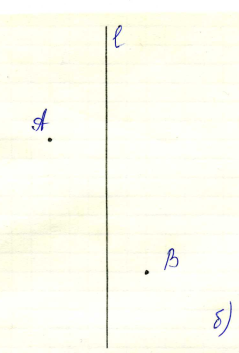 ℓ
A
B
б)